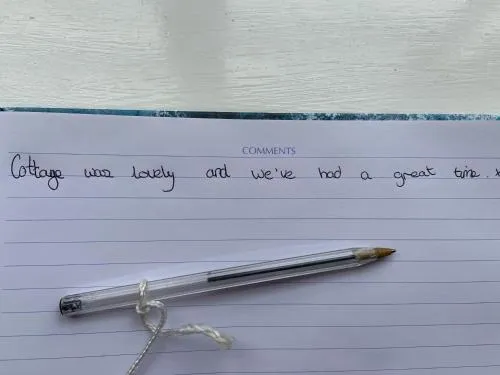 COMMENTS
Cottage was lovely and we've had a great time.